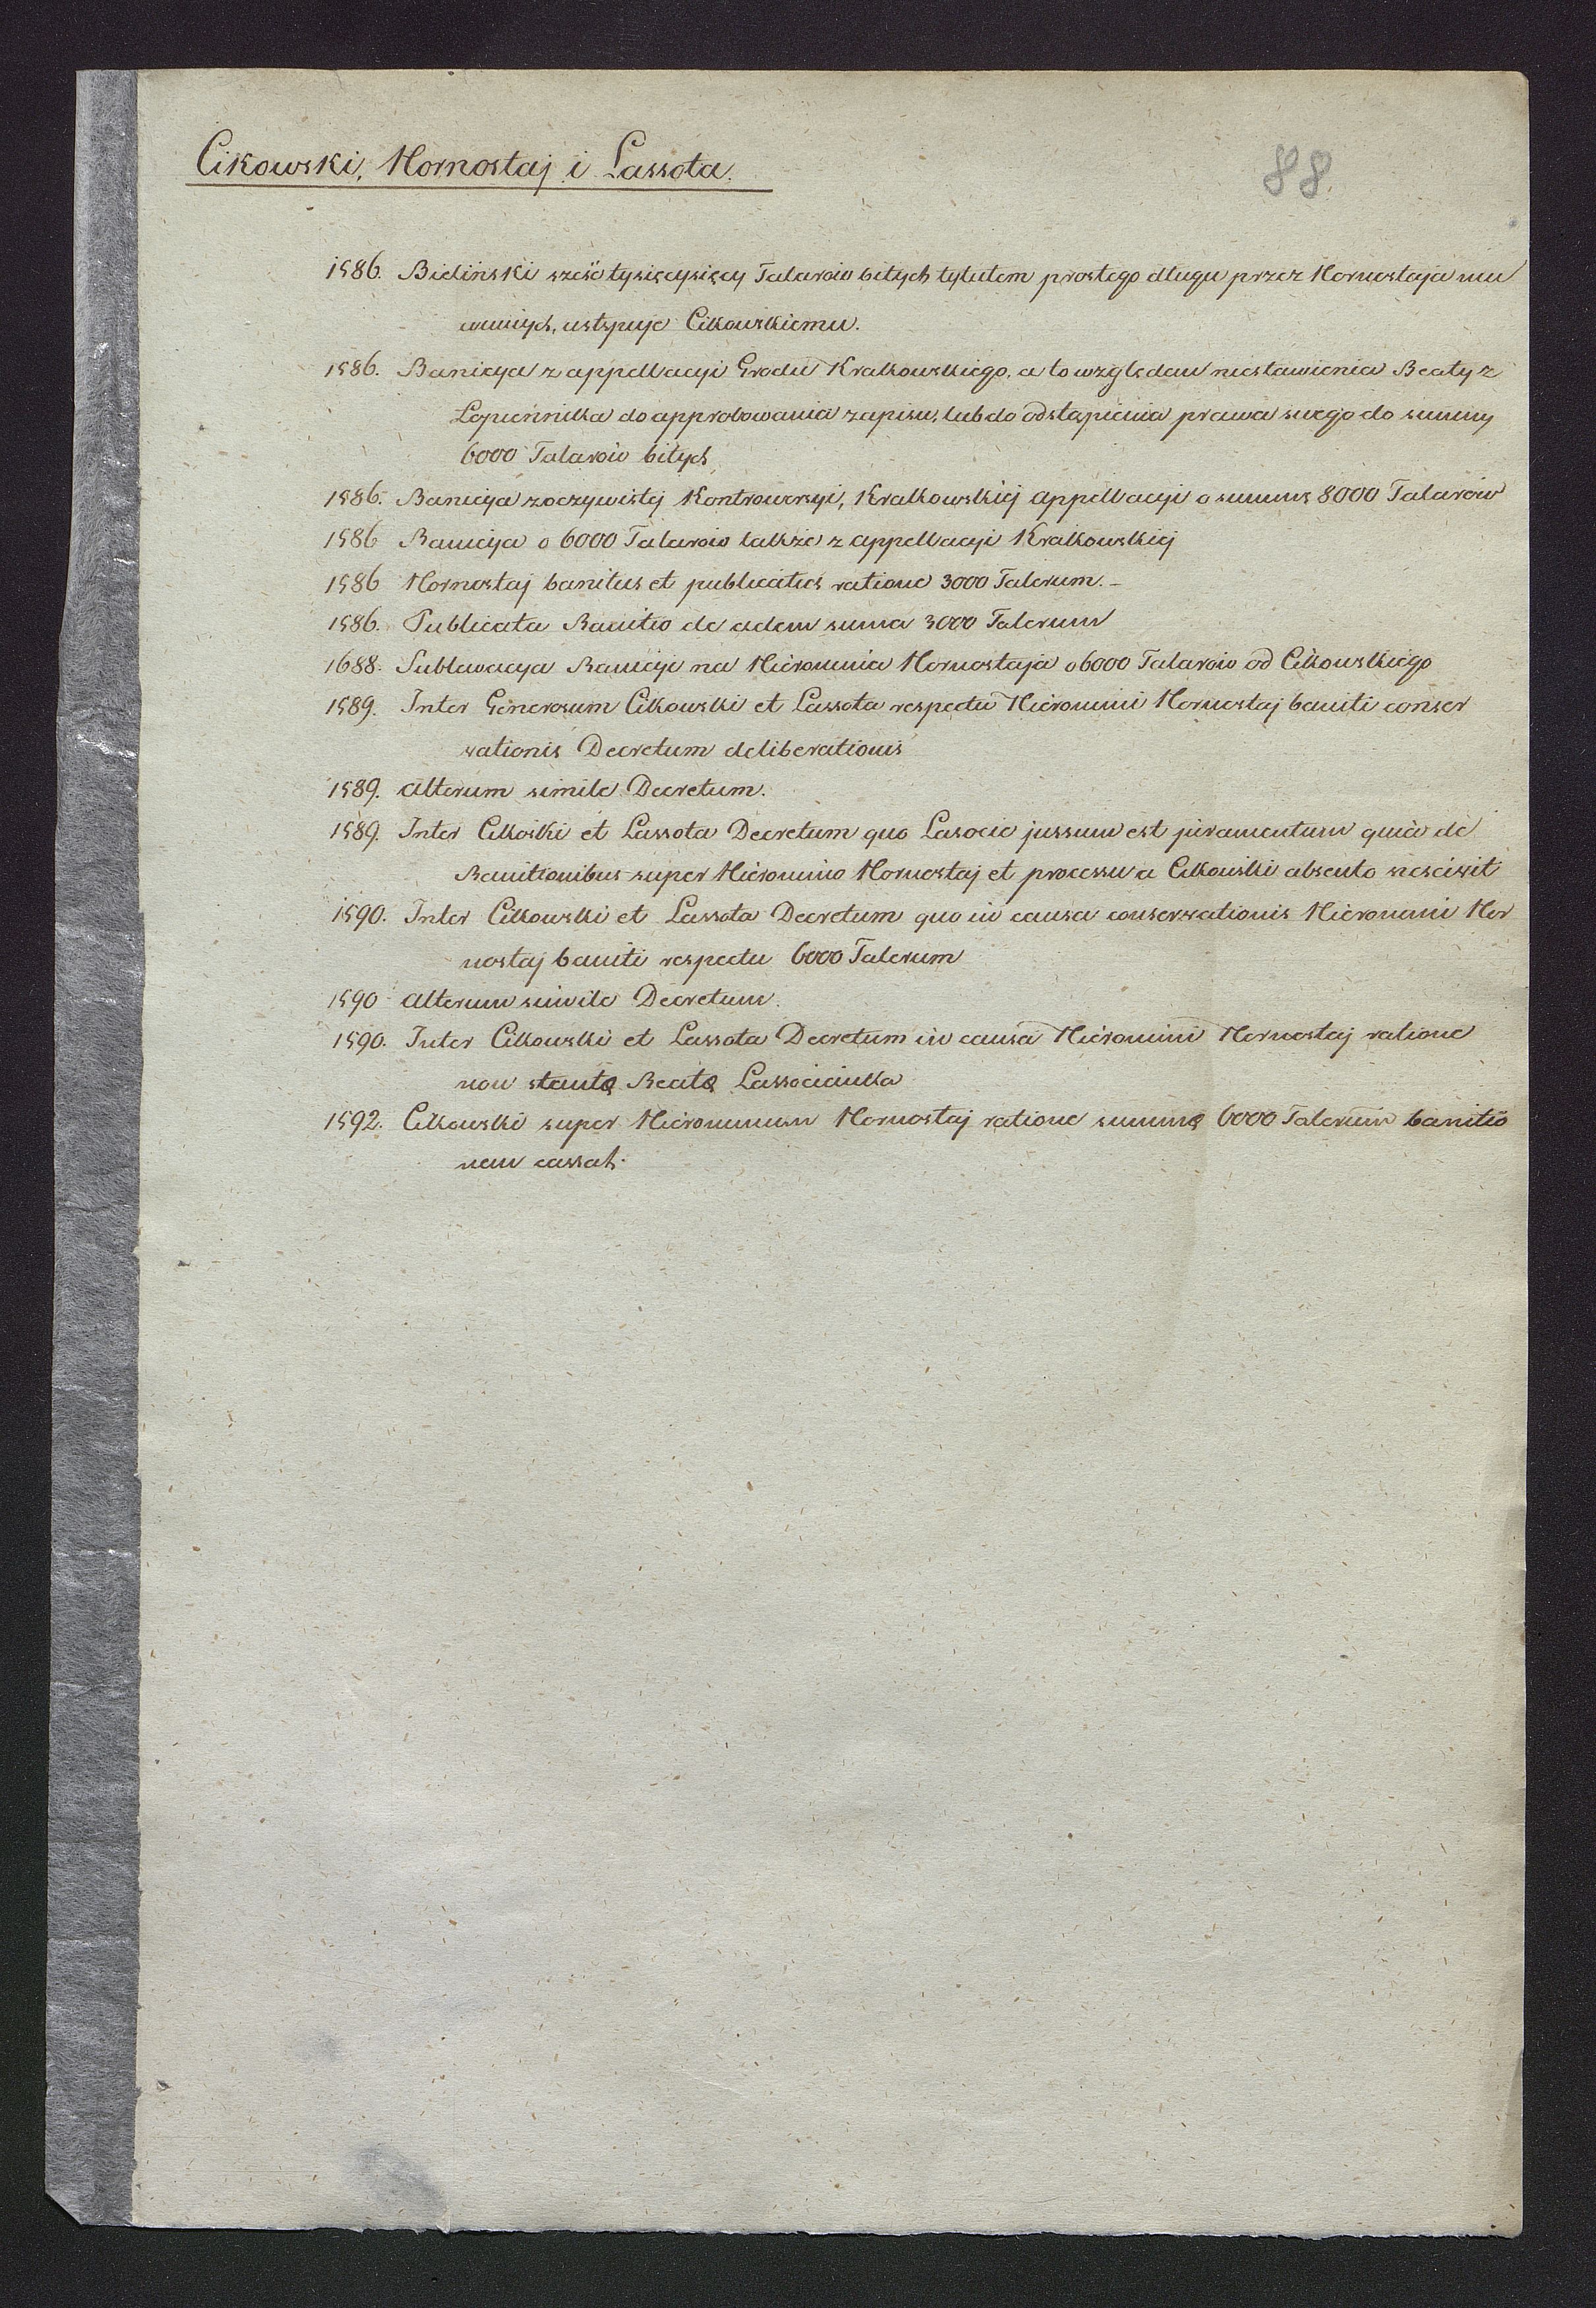 Cikowski, Hornostaj i Lassota.
88.
1586. Bieliński sześć tysięcysięcy Talarow bitych tytułem prostego długu przez Hornostaja mu
winnych, ustąpuje Cikowskiemu.
1586. Banicya z appellacyi Grodu Krakowskiego, a to względem niestawienia Beaty z
Łopiennika do approbowania zapisu, lub do odstąpienia prawa swego do summy
6000 Talarow bitych
1586. Banicya zoczywistej Kontrowersyi, Krakowskiej appellacyi o summę 8000 Talarow
1586 Banicya o 6000 Talarow także z appellacyi Krakowskiej
1586 Hornostaj banitus et publicatus ratione 3000 Talerum.-
1586. Publicata Banitio de eadem suma 3000 Talerum
1688. Sublewacya Banicyi na Hieronima Hornostaja o 6000 Talarow od Cikowskiego
1589. Inter Generosum Cikowski et Lassota respectu Hieronimi Hornostaj baniti conser
vationis Decretum deliberationis
1589. Alterum simile Decretum.
1589. Inter Cikoski et Lassota Decretum quo Lasocie jussum est juramentum quia de
Banitionibus super Hieronimo Hornostaj et processu a Cikowski absento nescivit
1590. Inter Cikowski et Lassota Decretum quo in causa conservationis Hieronimi Hor
nostaj baniti respectu 6000 Talerum
1590 Alterum simile Decretum.
1590. Inter Cikowski et Lassota Decretum in causa Hieronimi Hornostaj ratione
non stantę Beatę Lassocianka
1592. Cikowski super Hieronimum Hornostaj ratione summę 6000 Talerum banitio
nem cassat.